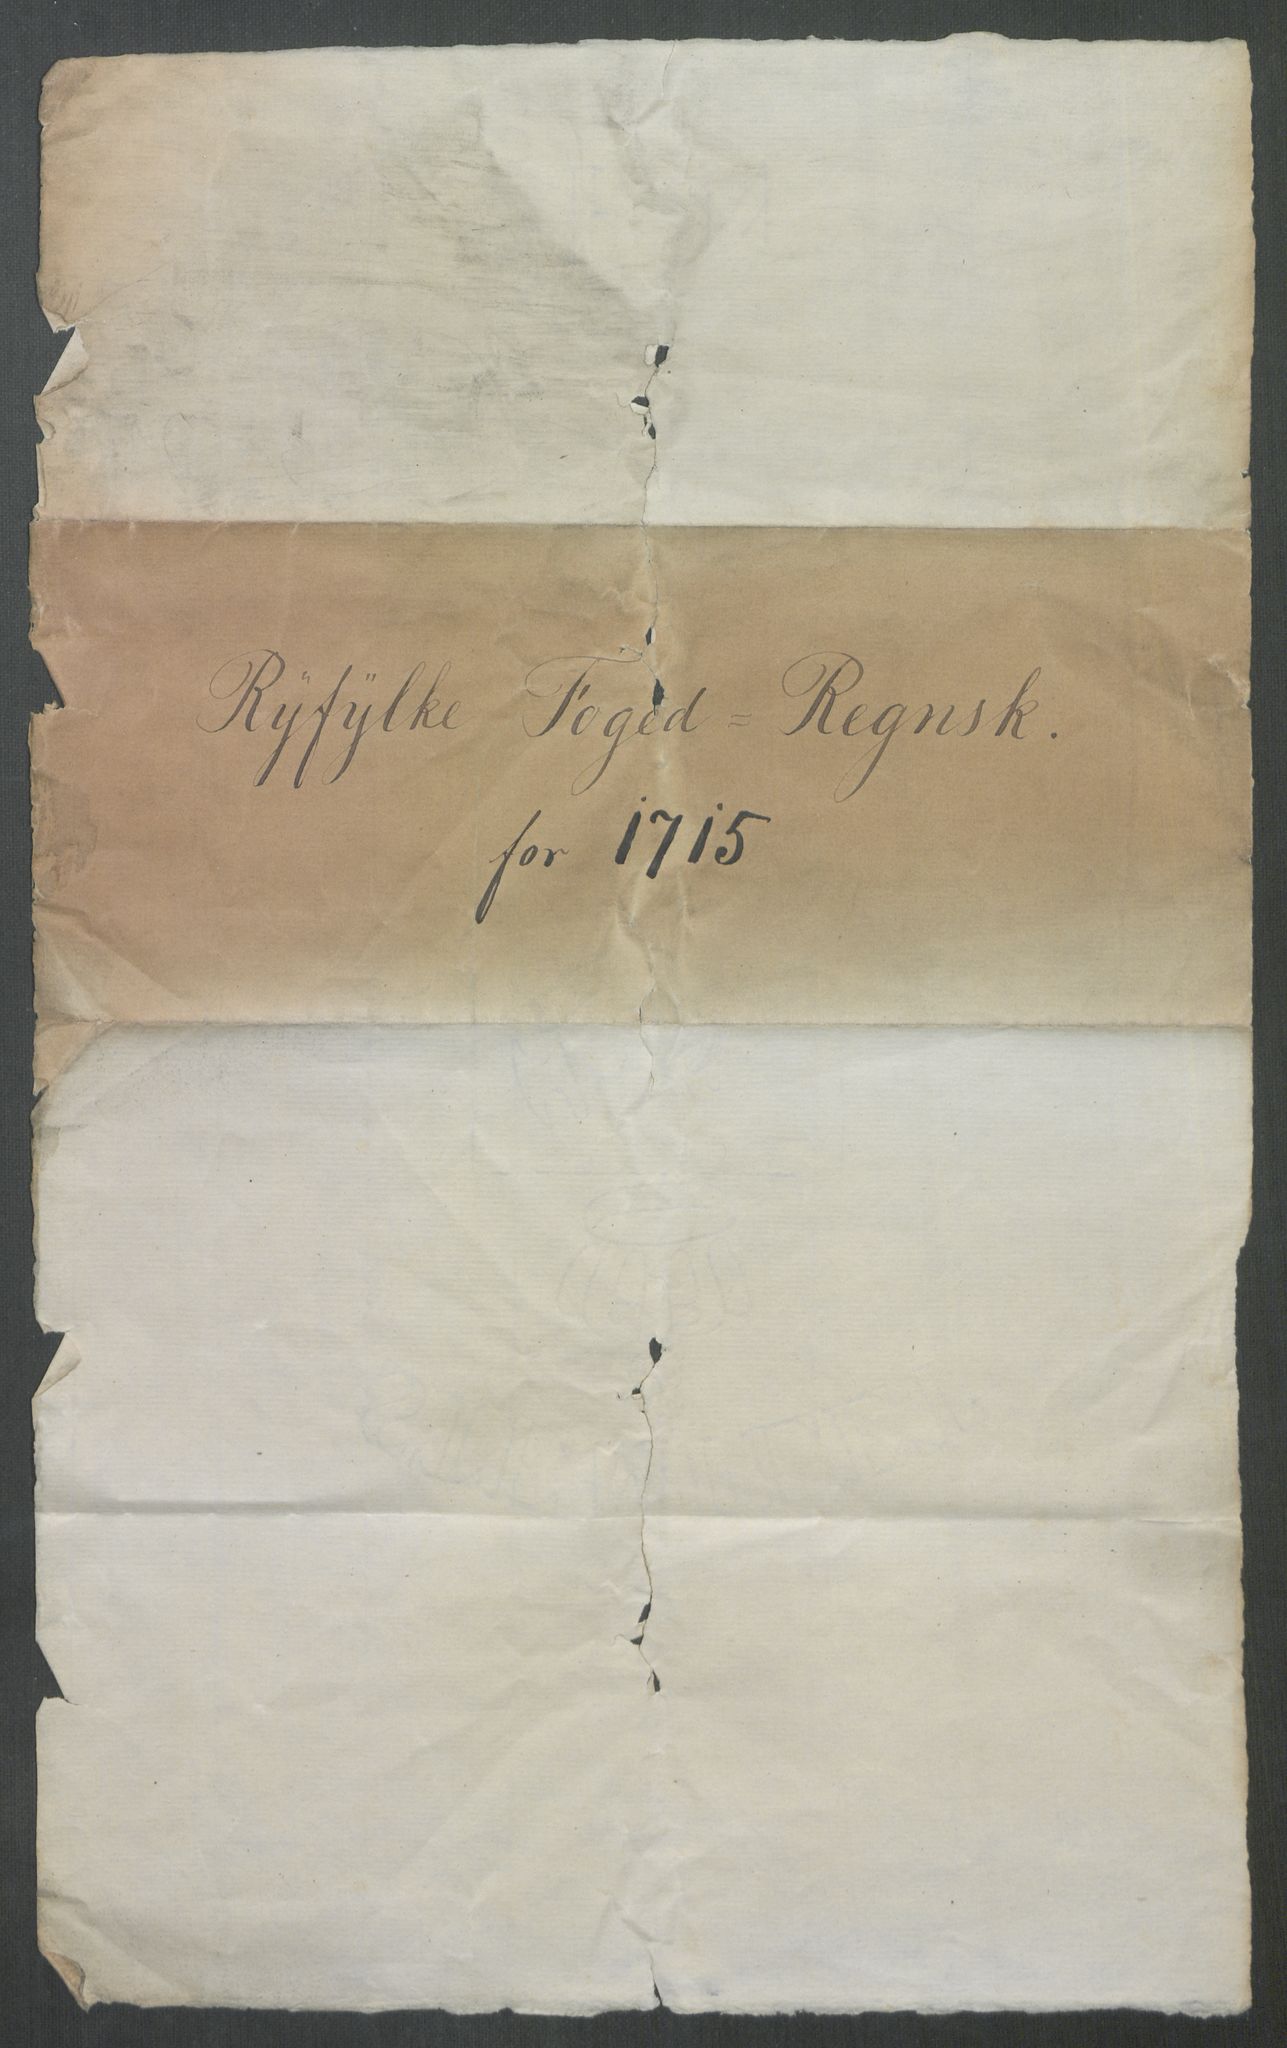 Rÿfÿlke Foged = Regnsk.
for 1715